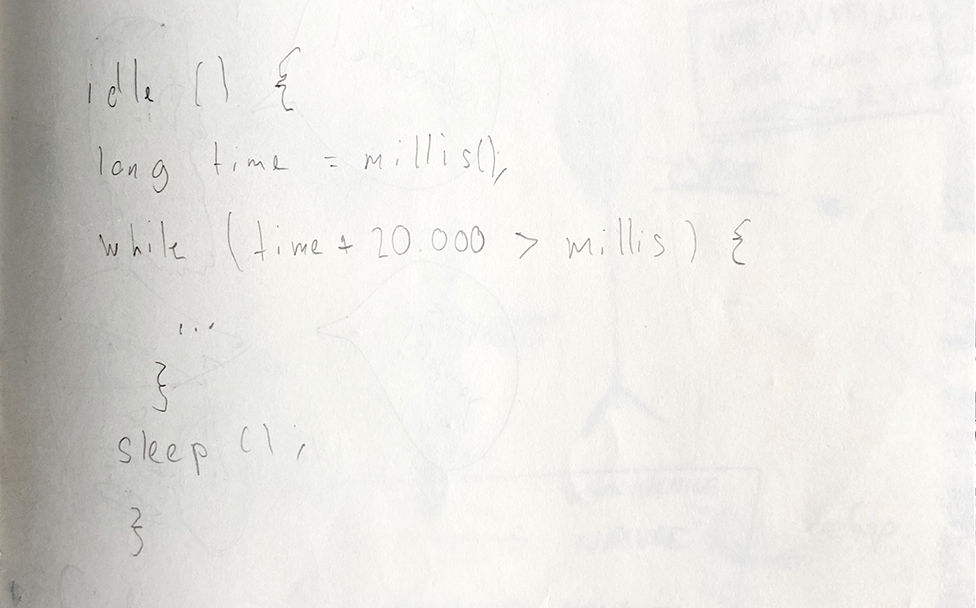 idle () {
long time = millis();
while (time + 20.000 > millis) {
...
}
sleep ();
}